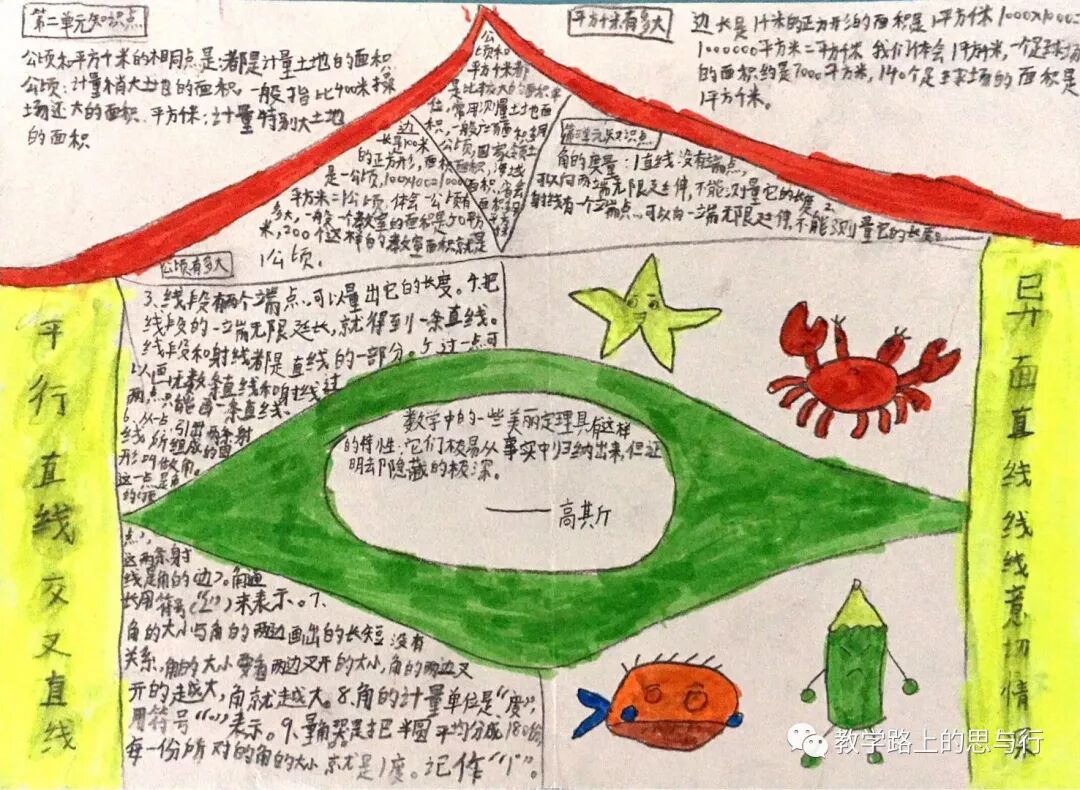 第二单元知识点
公顷和平方千米的相同点是:都是计量土地的面积.
公顷:计量稍大土地的面积。一般指比400米操
场还大的面积.平方千米:计量特别大土地
的面积
平方千米有多大
边长是1千米的正方形的面积是1平方千米1000×1000=
1000000平方米=平方千米 我们体会1平方千米,一个足球场
的面积约是7000平方米,140个足球场的面积是
1平方千米。
公顷和
平方千米都
是比较大的面积单
位,常用测量土地面
积,一般
公顷,国家领土
边
长是100米
的正方形,面积
是一公顷,100×100=1000
平方米=1公顷.体会一公顷有
多大,一般一个教室的面积是50平方
米,200个这样的教室面积就是
1公顷。
公顷有多大
第三单元知识点
角的度量:1直线没有端点,
可以向两端无限延伸,不能测量它的长度2、
射线有一个端点,可以向一端无限延伸不能测量它的长度。
3、线段有两个端点,可以量出它的长度。4.把
线段的一端无限延长,就得到一条直线。
线段和射线都是直线的一部分。5过一点可
以画无数条直线和射线过
两点只能画一条直线、
6、从一点引出两条射
线所组成的图
形叫做角。
这一点是角
的顶
点,
这两条射
线是角的边。角通
长用符号(“∠”)来表示。7、
角的大小与角的两边画出的长短没有
关系,角的大小要看两边叉开的大小,角的两边叉
开的越大,角就越大。8、角的计量单位是“度”,
用符号“°”表示。9、量角器是把半圆平均分成180份
每一份所对的角的大小就是1度。记作“1°”。
数学中的一些美丽定理具有这样
的特性:它们极易从事实中归纳出来,但证
明却隐藏的极深。
——高其斤
平行直线交叉直线
异面直线线线意切情深
教学路上的思与行